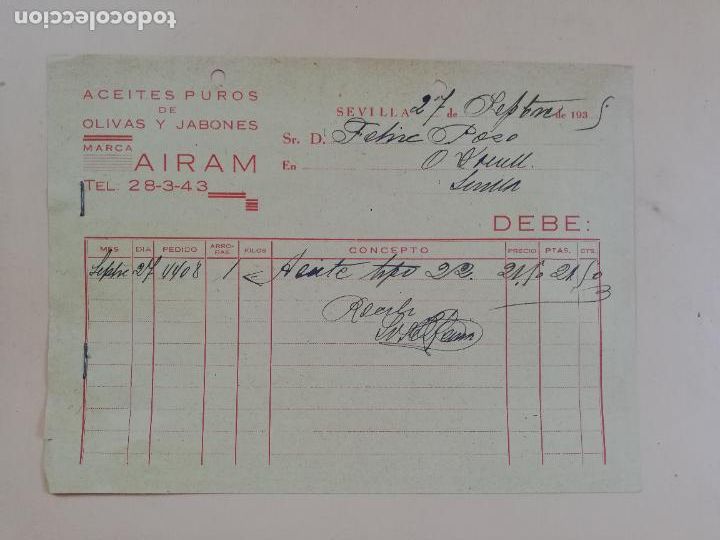 todocoleccion
ACEITES PUROS
DE
OLIVAS Y JABONES
MARCA
AIRAM
TEL. 28-3-43
SEVILLA 27 de Septbre de 1935
Sr. D. Felipe Pozo
En O'Donell
Sevilla
DEBE:
MES DIA PEDIDO ARRO-BAS KILOS CONCEPTO PRECIO PTAS. CTS.
Septbre 27 1108 1 Aceite tipo 22. 21,50 21 50
Recibí